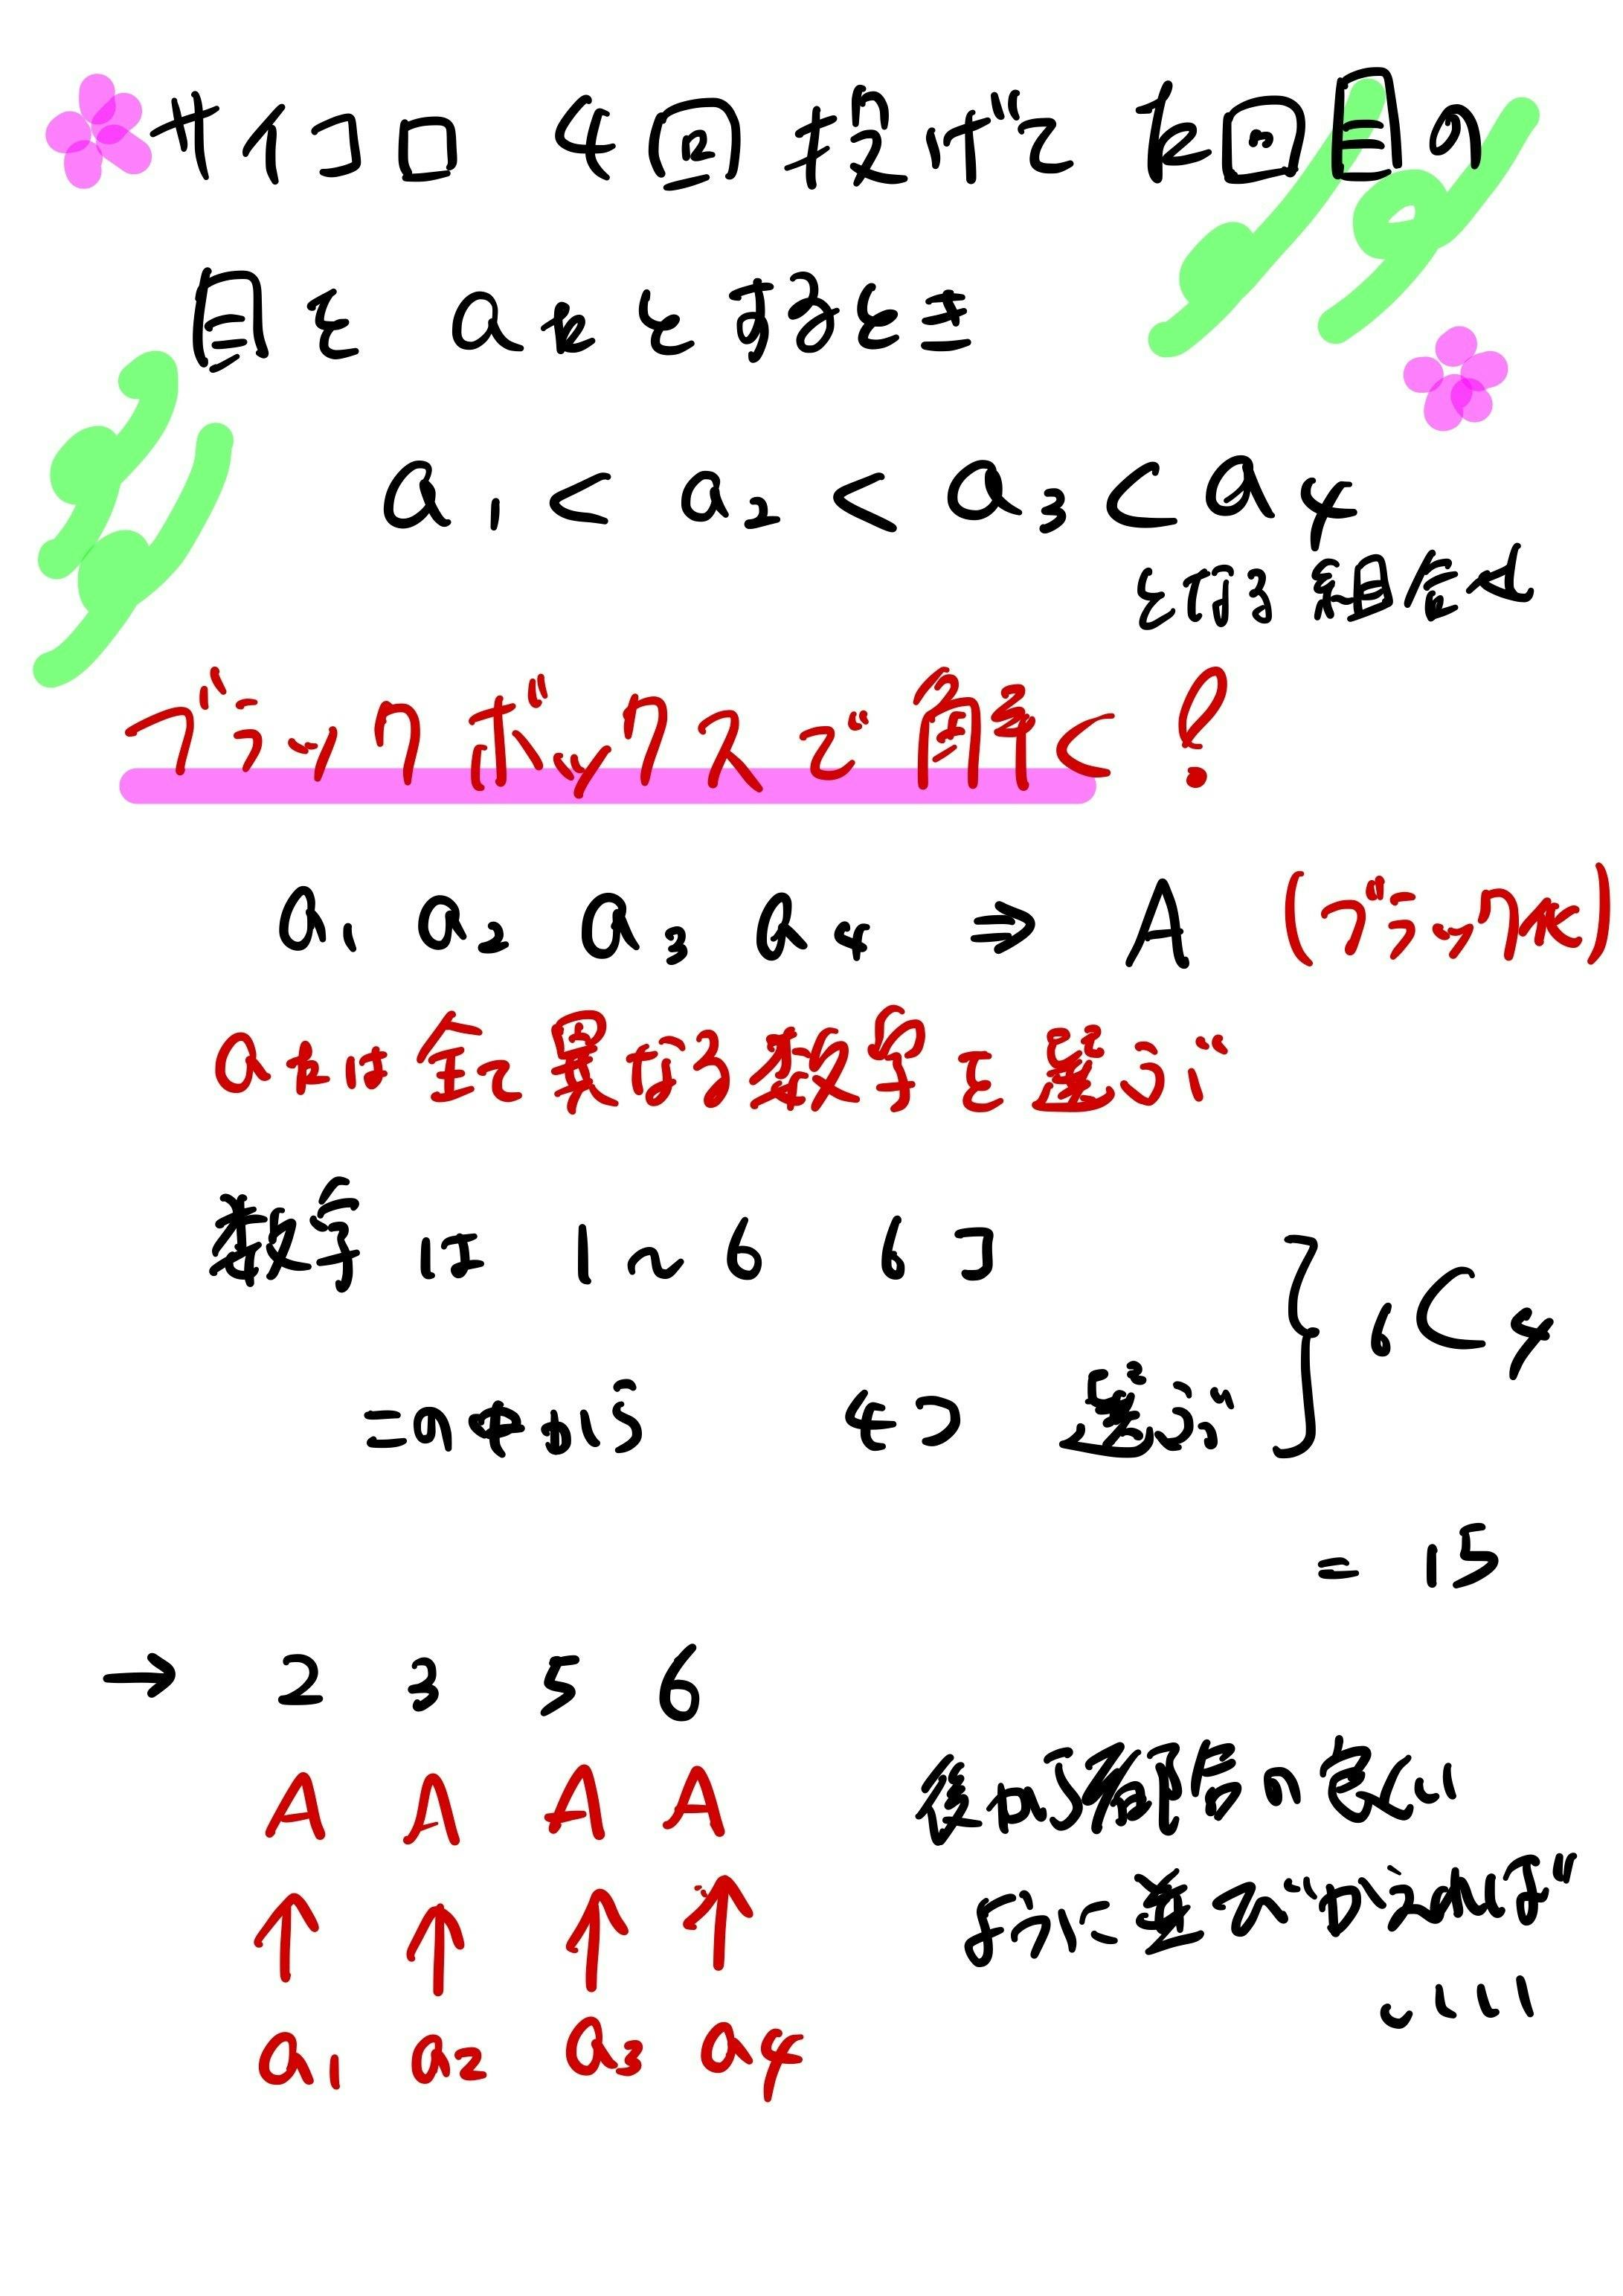 サイコロ 4回 投げて k回目の
目を akとするとき
a1 < a2 < a3 < a4
となる組合せ
ブラックボックスで解く!
a1 a2 a3 a4 ⇒ A (ブラック化)
akは全て異なる数字を選ぶ
数字は 1~6 6コ
この中から 4つ 選ぶ } 6C4
= 15
→ 2 3 5 6
A A A A
↑ ↑ ↑ ↑
a1 a2 a3 a4
後から都合の良い
ように並びかえれば
いい!!